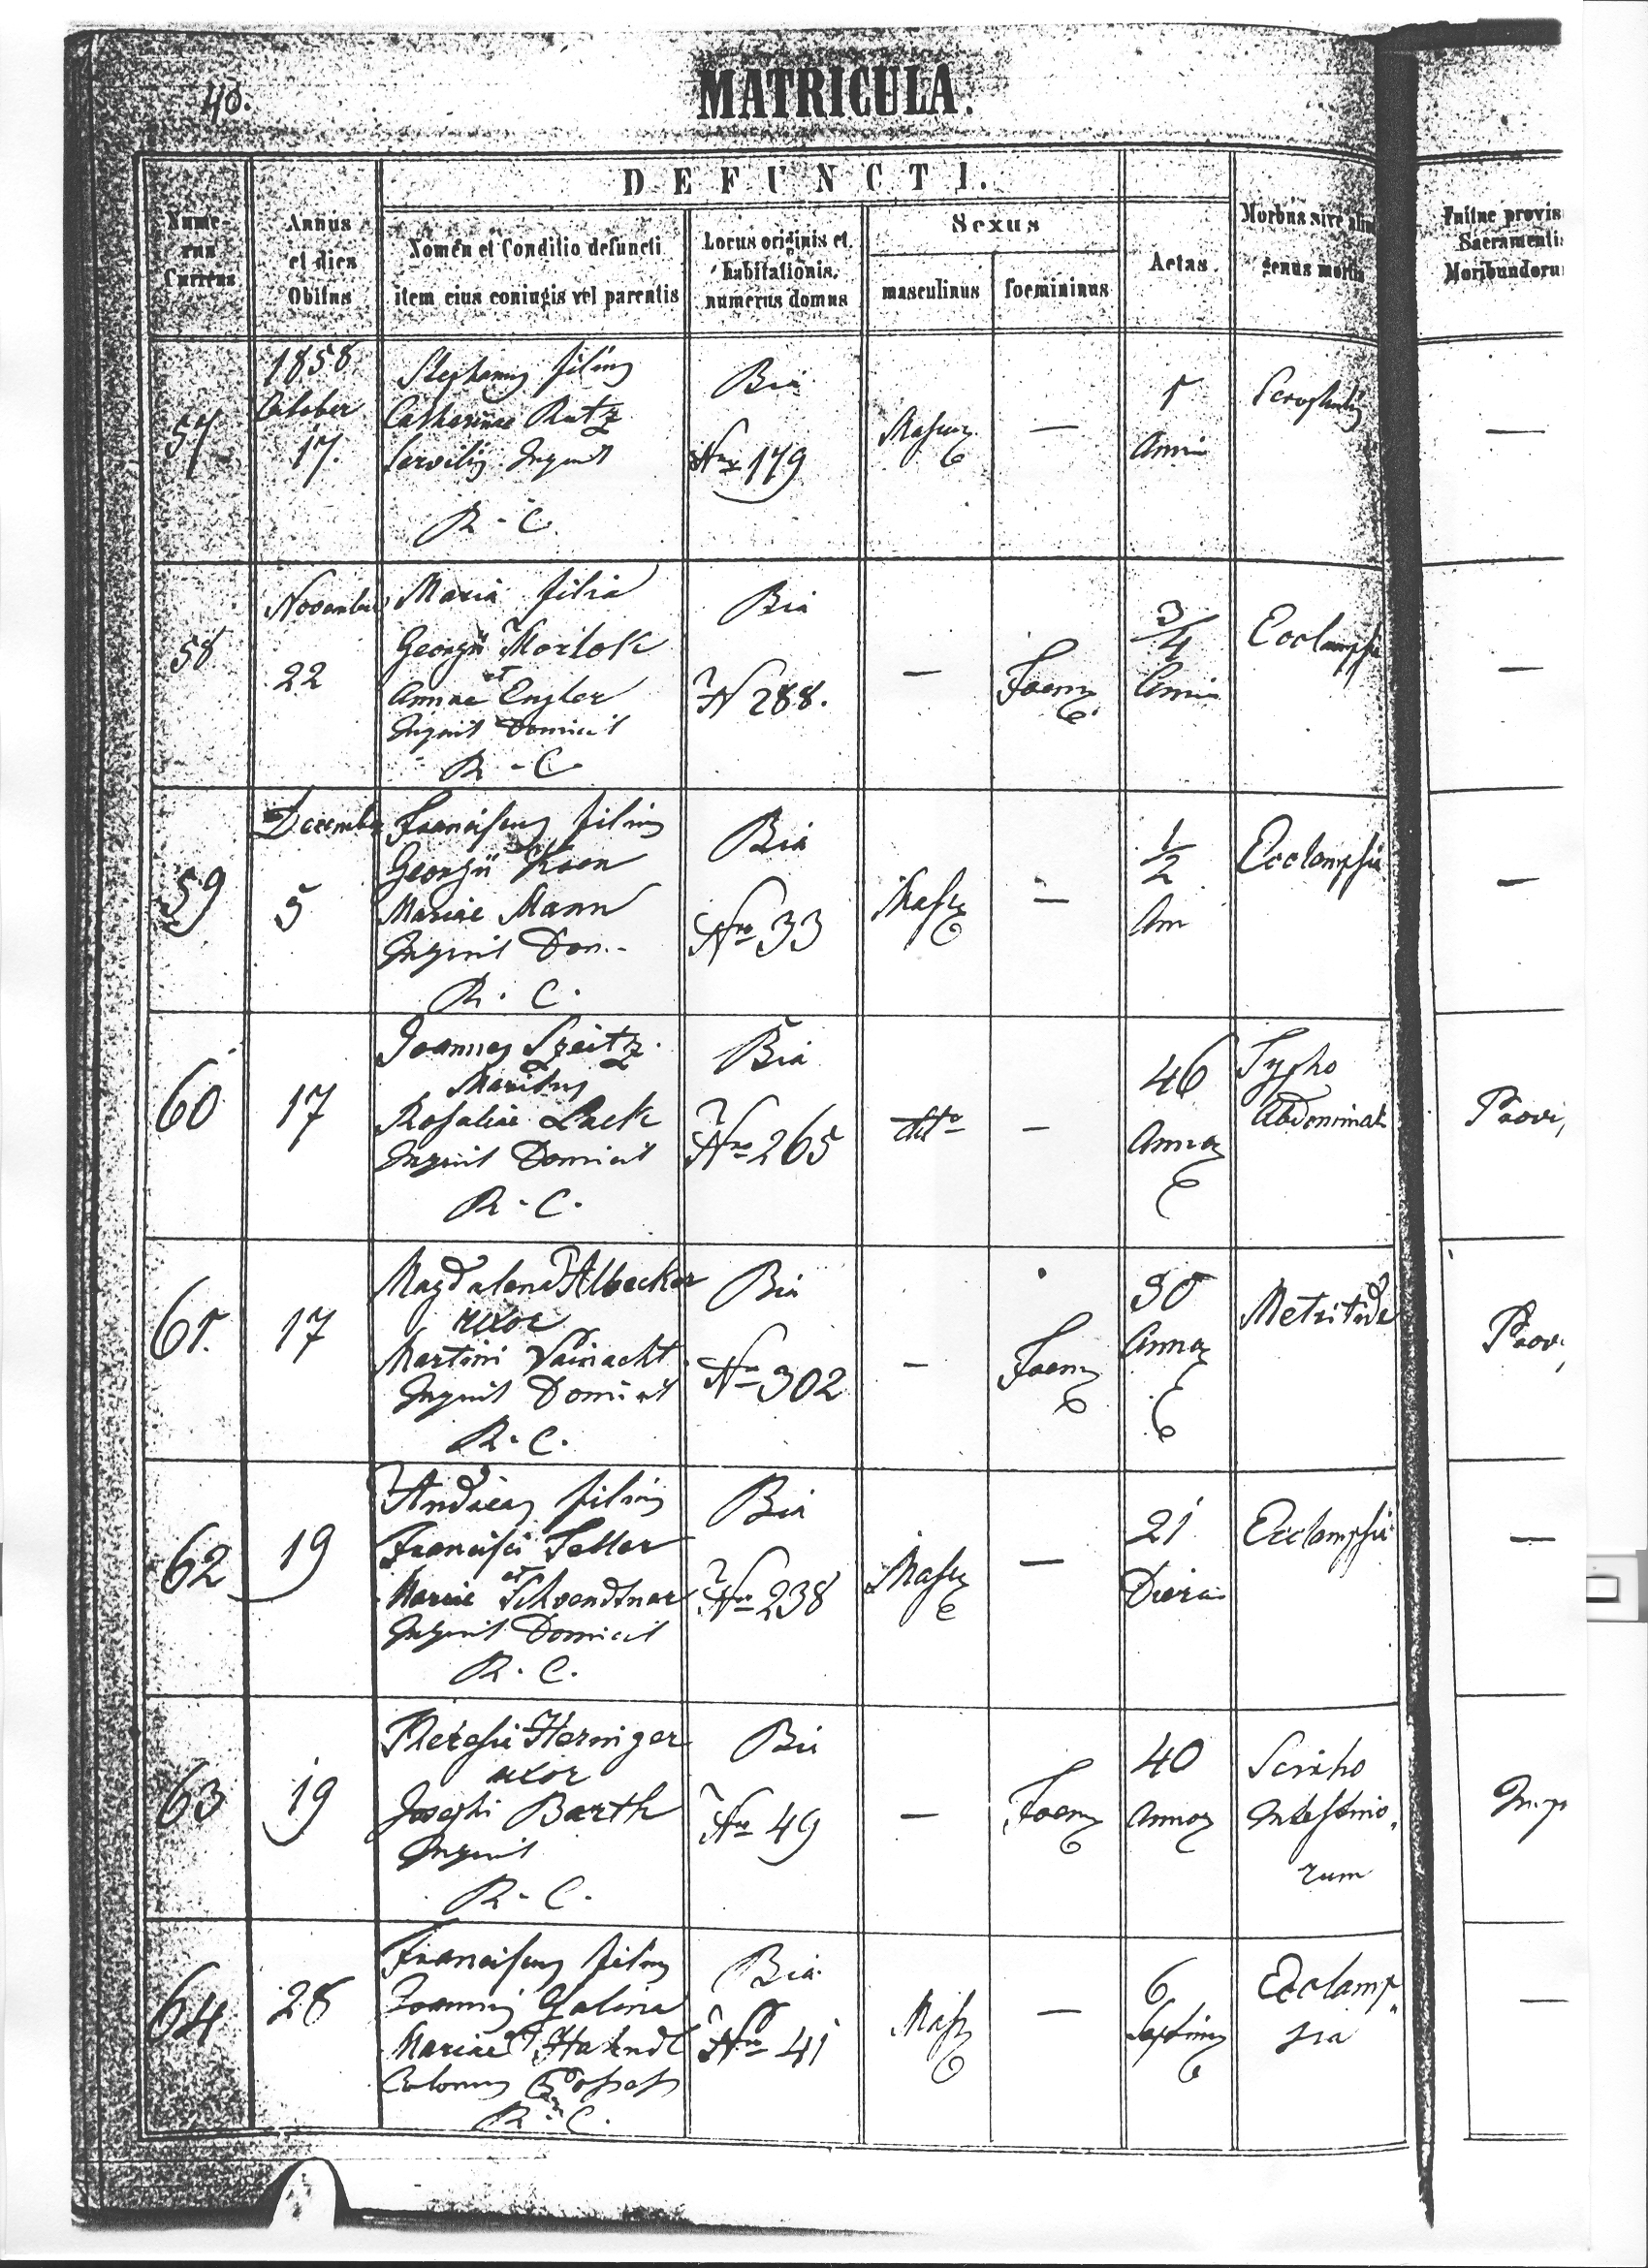 40.
MATRICULA.
DEFUNCTI.
Nume-
rus
Currens
Annus
et dies
Obitus
Nomen et Conditio defuncti
item eius coniugis vel parentis
Locus originis et
habitationis,
numerus domus
Sexus
masculinus
foemininus
Aetas
Morbus sive aliud
genus mortis
Fuitne provis
Sacramentis
Moribundoru
57
1858
October
17.
Stephanus filius
Catharinae Rutz
Servilis Inquil
R. C.
Bia
Nro 179
Mascu
—
5
Anni
Scrophulis
—
58
November
22
Maria filia
Georgii Morlok
et
Annae Engler
Inquil Domicil
R. C.
Bia
N 288.
—
Foem
3/4
Anni
Ecclampsia
—
59
December
5
Franciscus filius
Georgii Koon
Mariae Mann
Inquil Dom.
R. C.
Bia
Nro 33
Masc
—
1/2
Ann
Ecclampsia
—
60
17
Joannes Szeitz
Maritus
Rosaliae Lack
Inquil Domicil
R. C.
Bia
Nro 265
ditto
—
46
Annor
Typho
Abdominali
Provi
61.
17
Magdalena Albecker
uxor
Martini Vainacht
Inquil Domicil
R. C.
Bia
Nro 302
—
Foem
30
Annor
Metritide
Prov
62
19
Andreas filius
Francisci Feller
et
Mariae Schvendtner
Inquil Domicil
R. C.
Bia
Nro 238
Masc
—
21
Diera
Ecclampsia
—
63
19
Theresia Herninger
uxor
Josephi Barth
Inquil
R. C.
Bia
Nro 49
—
Foem
40
Annor
Intestino
rum
64
28
Franciscus filius
Joannis
Mariae
Colonus
R. C.
Bia
Nro 41
Masc
—
6
Ecclamp
sia
—